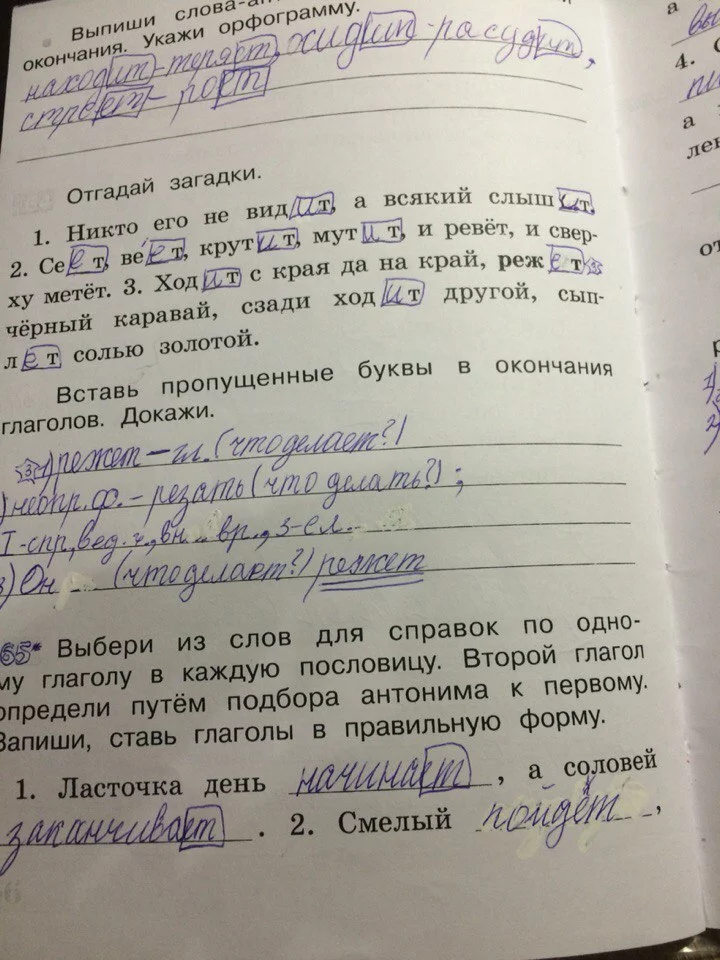 Выпиши слова-ан
окончания. Укажи орфограмму.
находит-теряет,
строет-
Отгадай загадки.
1. Никто его не видит, а всякий слышит.
2. Сеет, веет, крутит, мутит, и ревёт, и свер-
ху метёт. 3. Ходит с края да на край, режет
чёрный каравай, сзади ходит другой, сып-
лет солью золотой.
Вставь пропущенные буквы в окончания
глаголов. Докажи.
3 1) режет – гл. (что делает?)
) неопр. ф. – резать (что делать?);
I-спр, ед. ч., вр., 3-ел.
) Он (что делает?) режет
65* Выбери из слов для справок по одно-
му глаголу в каждую пословицу. Второй глагол
определи путём подбора антонима к первому.
Запиши, ставь глаголы в правильную форму.
1. Ласточка день начинает, а соловей
заканчивает. 2. Смелый пойдёт,
а
4.
а
лен
от